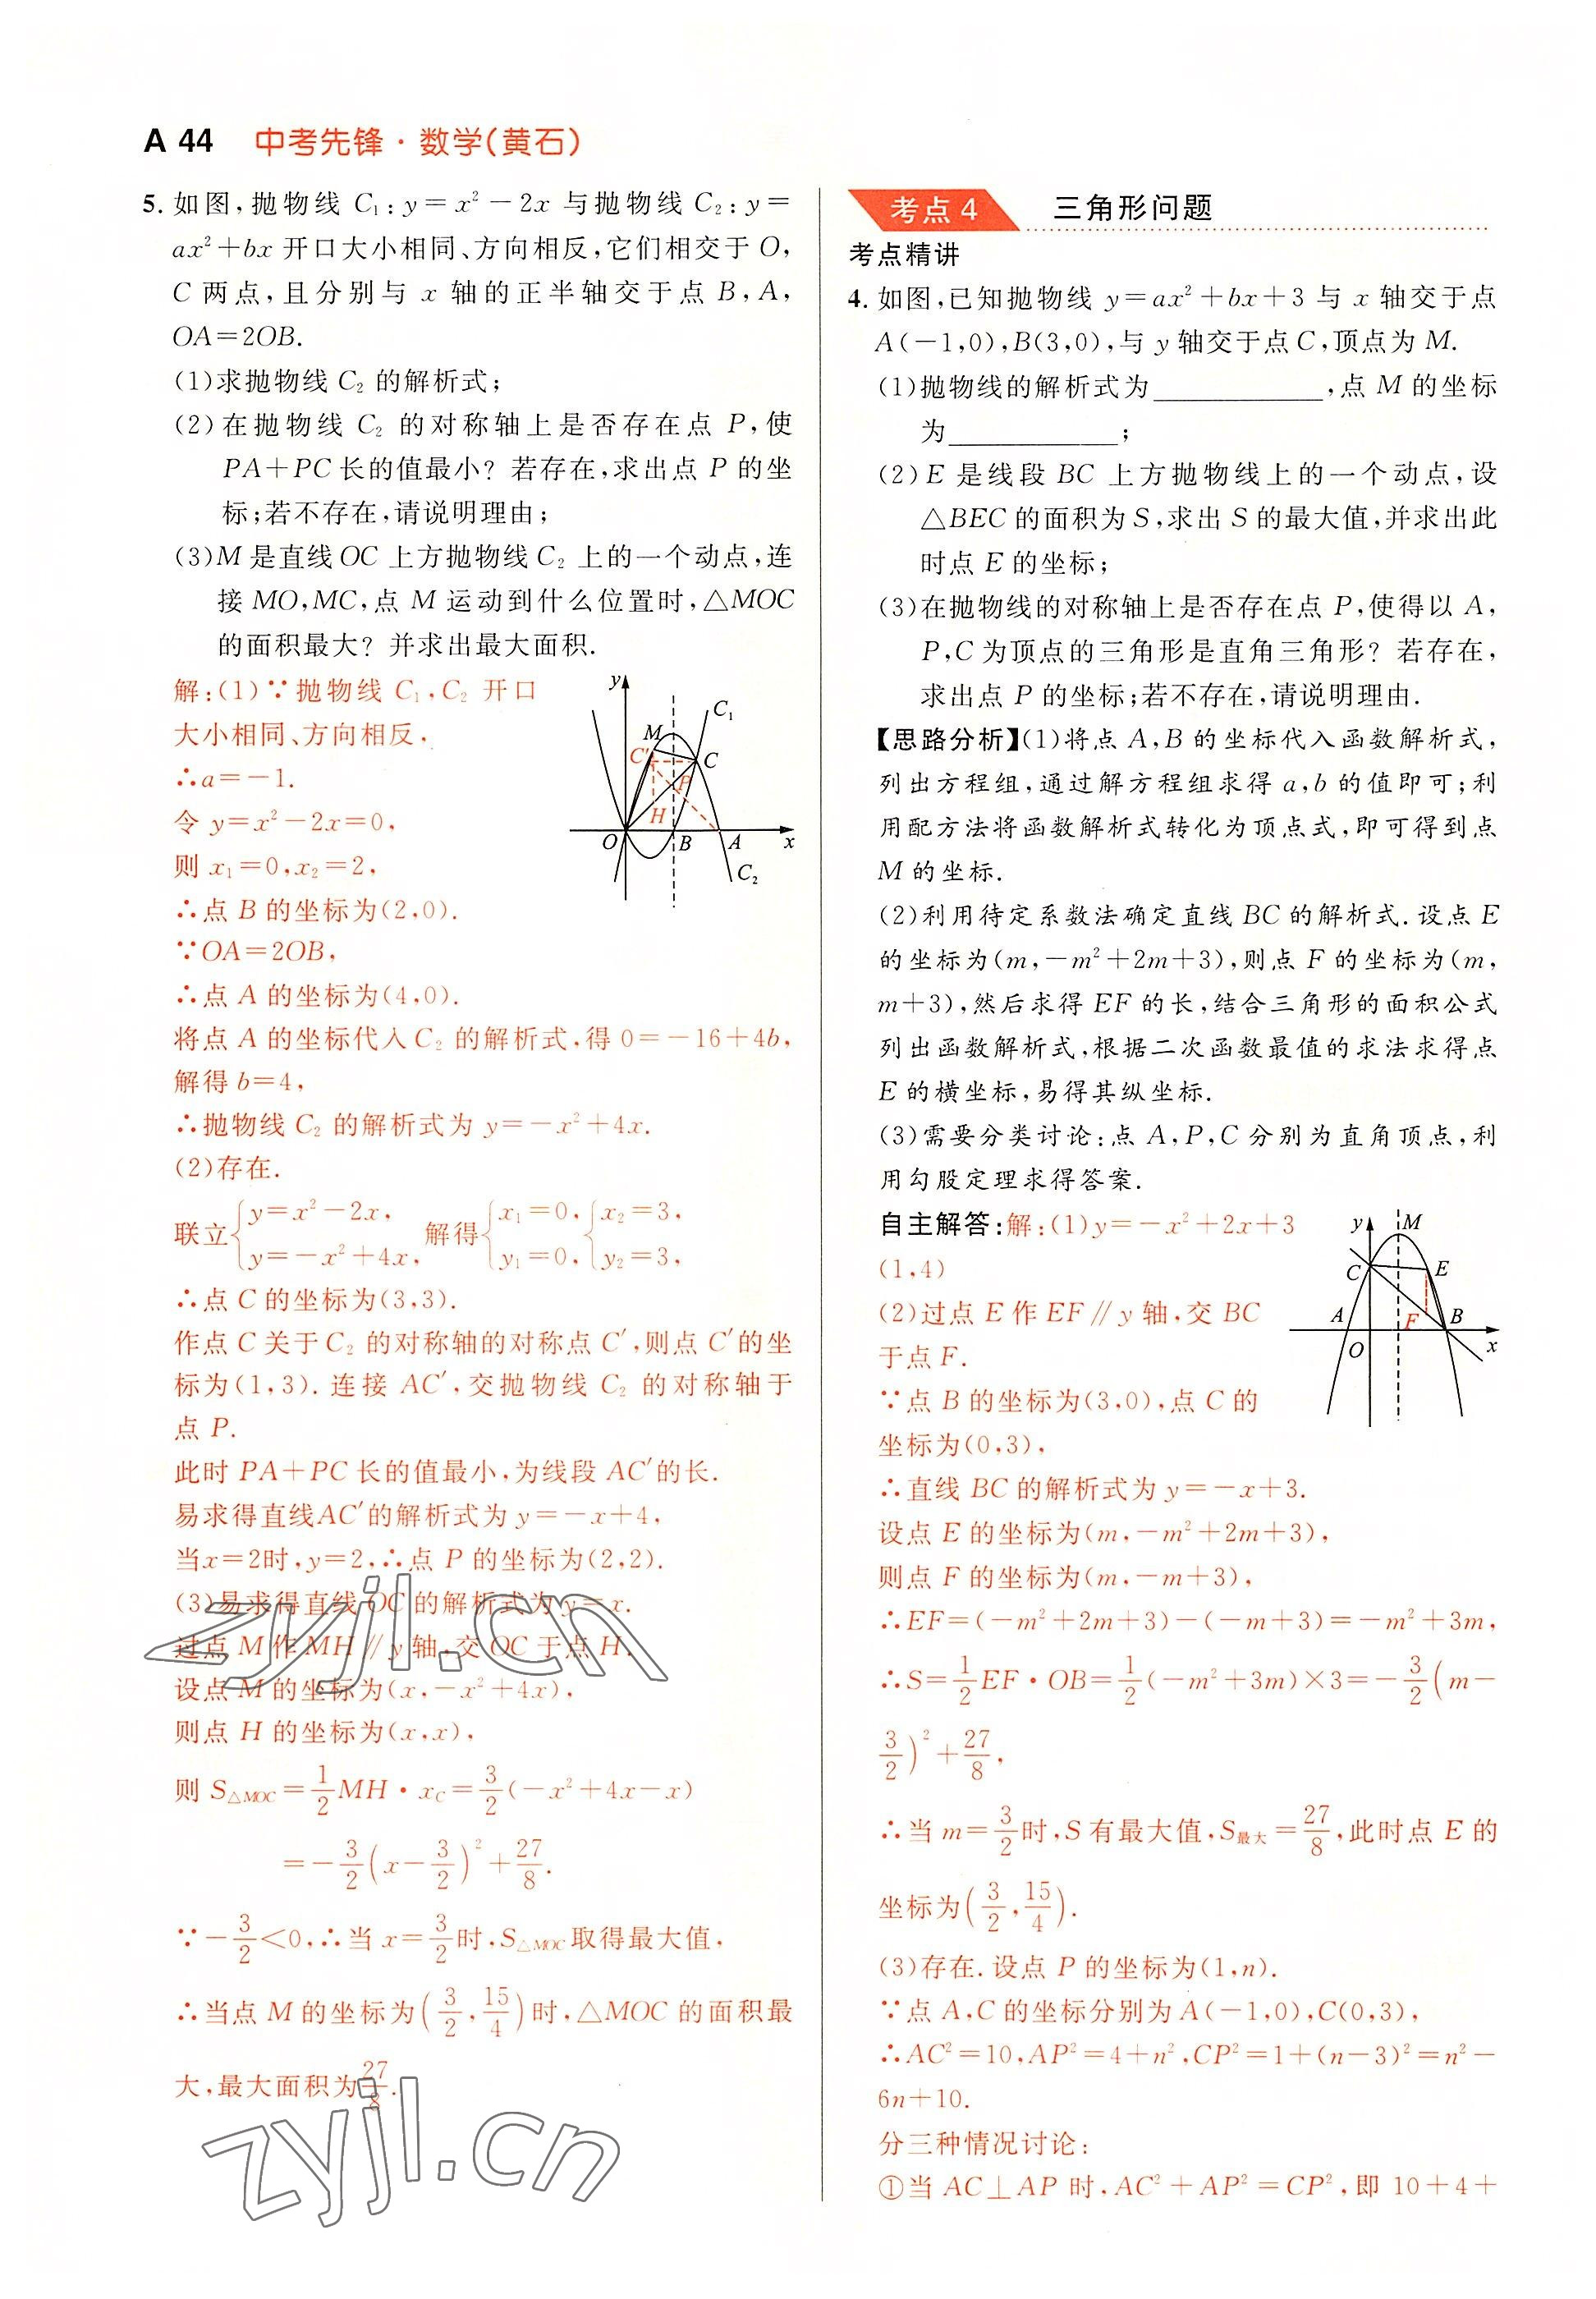 A 44 中考先锋·数学(黄石)
5. 如图,抛物线 C₁:y=x²-2x 与抛物线 C₂:y=
ax²+bx 开口大小相同、方向相反,它们相交于 O,
C 两点,且分别与 x 轴的正半轴交于点 B,A,
OA=2OB.
(1)求抛物线 C₂ 的解析式;
(2)在抛物线 C₂ 的对称轴上是否存在点 P,使
PA+PC 长的值最小? 若存在,求出点 P 的坐
标;若不存在,请说明理由;
(3)M 是直线 OC 上方抛物线 C₂ 上的一个动点,连
接 MO,MC,点 M 运动到什么位置时,△MOC
的面积最大? 并求出最大面积.
解:(1)∵抛物线 C₁,C₂ 开口
大小相同、方向相反,
∴a=-1.
令 y=x²-2x=0,
则 x₁=0,x₂=2,
∴点 B 的坐标为(2,0).
∵OA=2OB,
∴点 A 的坐标为(4,0).
y
C₁
M
C′
C
P
H
O
B
A
x
C₂
将点 A 的坐标代入 C₂ 的解析式,得 0=-16+4b,
解得 b=4,
∴抛物线 C₂ 的解析式为 y=-x²+4x.
(2)存在.
联立{y=x²-2x, y=-x²+4x, 解得{x₁=0, y₁=0, {x₂=3, y₂=3,
∴点 C 的坐标为(3,3).
作点 C 关于 C₂ 的对称轴的对称点 C′,则点 C′的坐
标为(1,3). 连接 AC′,交抛物线 C₂ 的对称轴于
点 P.
此时 PA+PC 长的值最小,为线段 AC′的长.
易求得直线AC′的解析式为 y=-x+4,
当x=2时,y=2,∴点 P 的坐标为(2,2).
(3)易求得直线 OC 的解析式为 y=x.
过点 M 作 MH∥y 轴,交 OC 于点 H.
设点 M 的坐标为(x,-x²+4x),
则点 H 的坐标为(x,x),
则 S△MOC=1/2MH·x_C=3/2(-x²+4x-x)
=-3/2(x-3/2)²+27/8.
∵-3/2<0,∴当 x=3/2时,S△MOC取得最大值,
∴当点 M 的坐标为(3/2,15/4)时,△MOC 的面积最
大,最大面积为27/8.
zyjl.cn
zyjl.cn
考点 4 三角形问题
考点精讲
4. 如图,已知抛物线 y=ax²+bx+3 与 x 轴交于点
A(-1,0),B(3,0),与 y 轴交于点 C,顶点为 M.
(1)抛物线的解析式为____________,点 M 的坐标
为____________;
(2)E 是线段 BC 上方抛物线上的一个动点,设
△BEC 的面积为 S,求出 S 的最大值,并求出此
时点 E 的坐标;
(3)在抛物线的对称轴上是否存在点 P,使得以 A,
P,C 为顶点的三角形是直角三角形? 若存在,
求出点 P 的坐标;若不存在,请说明理由.
【思路分析】(1)将点 A,B 的坐标代入函数解析式,
列出方程组,通过解方程组求得 a,b 的值即可;利
用配方法将函数解析式转化为顶点式,即可得到点
M 的坐标.
(2)利用待定系数法确定直线 BC 的解析式.设点 E
的坐标为(m,-m²+2m+3),则点 F 的坐标为(m,
m+3),然后求得 EF 的长,结合三角形的面积公式
列出函数解析式,根据二次函数最值的求法求得点
E 的横坐标,易得其纵坐标.
(3)需要分类讨论:点 A,P,C 分别为直角顶点,利
用勾股定理求得答案.
自主解答:解:(1)y=-x²+2x+3
(1,4)
(2)过点 E 作 EF∥y 轴,交 BC
于点 F.
∵点 B 的坐标为(3,0),点 C 的
坐标为(0,3),
y
M
C
E
A
F
B
O
x
∴直线 BC 的解析式为 y=-x+3.
设点 E 的坐标为(m,-m²+2m+3),
则点 F 的坐标为(m,-m+3),
∴EF=(-m²+2m+3)-(-m+3)=-m²+3m,
∴S=1/2EF·OB=1/2(-m²+3m)×3=-3/2(m-
3/2)²+27/8,
∴当 m=3/2时,S 有最大值,S最大=27/8,此时点 E 的
坐标为(3/2,15/4).
(3)存在.设点 P 的坐标为(1,n).
∵点 A,C 的坐标分别为 A(-1,0),C(0,3),
∴AC²=10,AP²=4+n²,CP²=1+(n-3)²=n²-
6n+10.
分三种情况讨论:
①当 AC⊥AP 时,AC²+AP²=CP²,即 10+4+